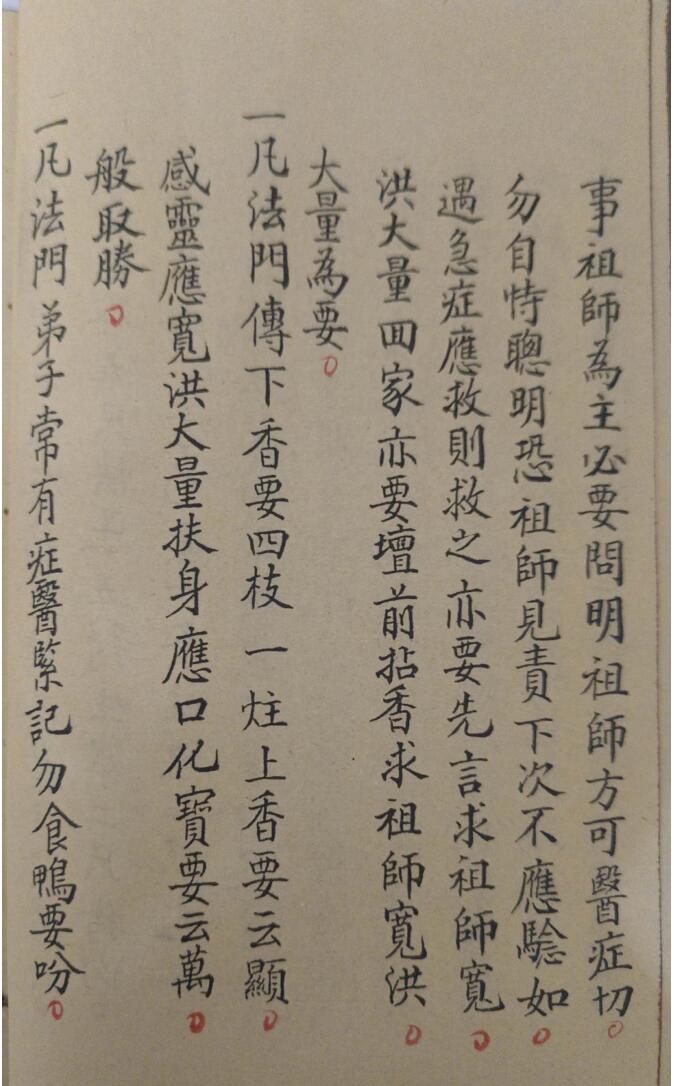 事祖師為主必要問明祖師方可醫症切
勿自恃聰明恐祖師見責下次不應驗如
遇急症應救則救之亦要先言求祖師寬
洪大量回家亦要壇前拈香求祖師寬洪
大量為要
一凡法門傳下香要四枝一炷上香要云顯
感靈應寬洪大量扶身應口化寶要云萬
般取勝
一凡法門弟子常有症醫緊記勿食鴨要吩